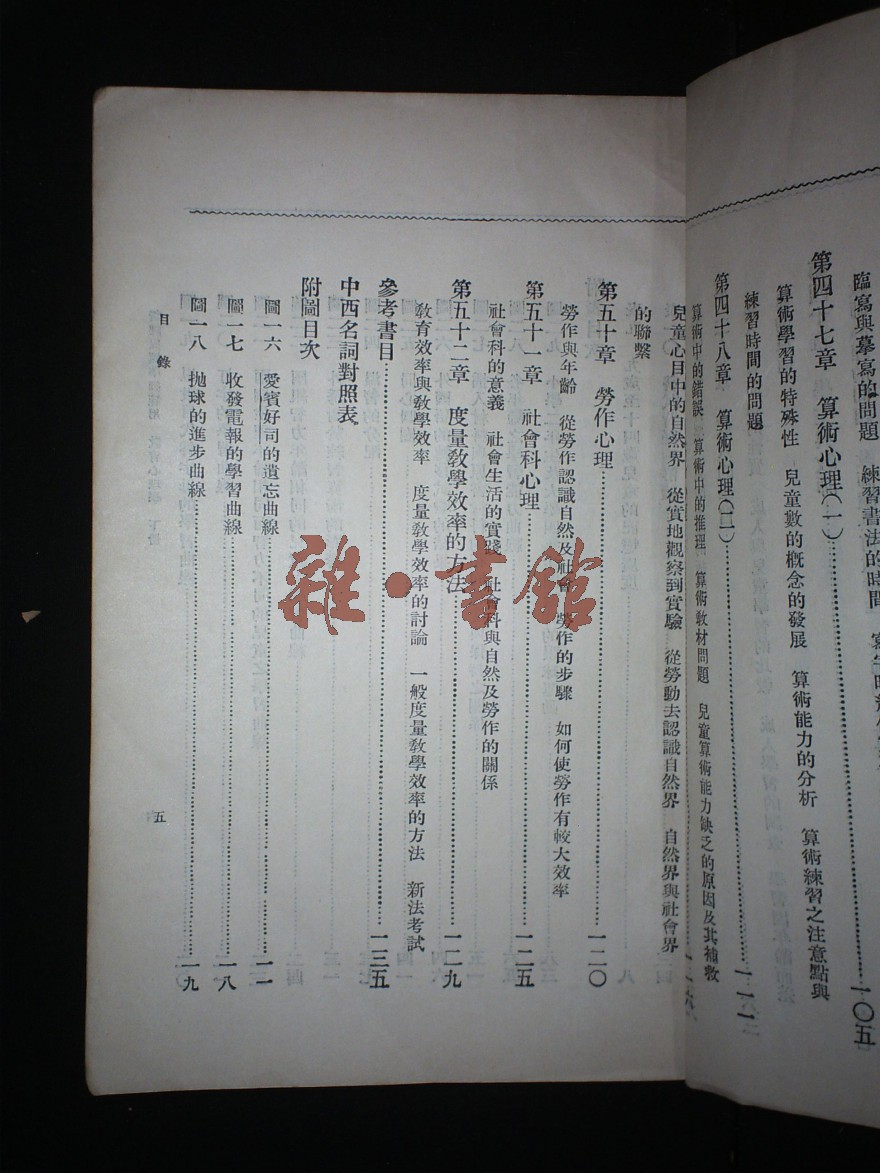 臨寫與摹寫的問題　練習書法的時間
第四十七章　算術心理(一)……一〇五
算術學習的特殊性　兒童數的概念的發展　算術能力的分析　算術練習之注意點與
練習時間的問題
第四十八章　算術心理(二)……一一一
算術中的錯誤　算術中的推理　算術教材問題　兒童算術能力缺乏的原因及其補救
兒童心目中的自然界　從實地觀察到實驗　從勞動去認識自然界　自然界與社會界
的聯繫
第五十章　勞作心理……一二〇
勞作與年齡　從勞作認識自然及社會　勞作的步驟　如何使勞作有較大效率
第五十一章　社會科心理……一二五
社會科的意義　社會生活的實踐　社會科與自然及勞作的關係
第五十二章　度量教學效率的方法……一二九
教育效率與教學效率　度量教學效率的討論　一般度量教學效率的方法　新法考試
參考書目……一三五
中西名詞對照表
附圖目次
圖一六　愛賓好司的遺忘曲線……一二
圖一七　收發電報的學習曲線……一八
圖一八　拋球的進步曲線……一九
目錄
五
雜·書館